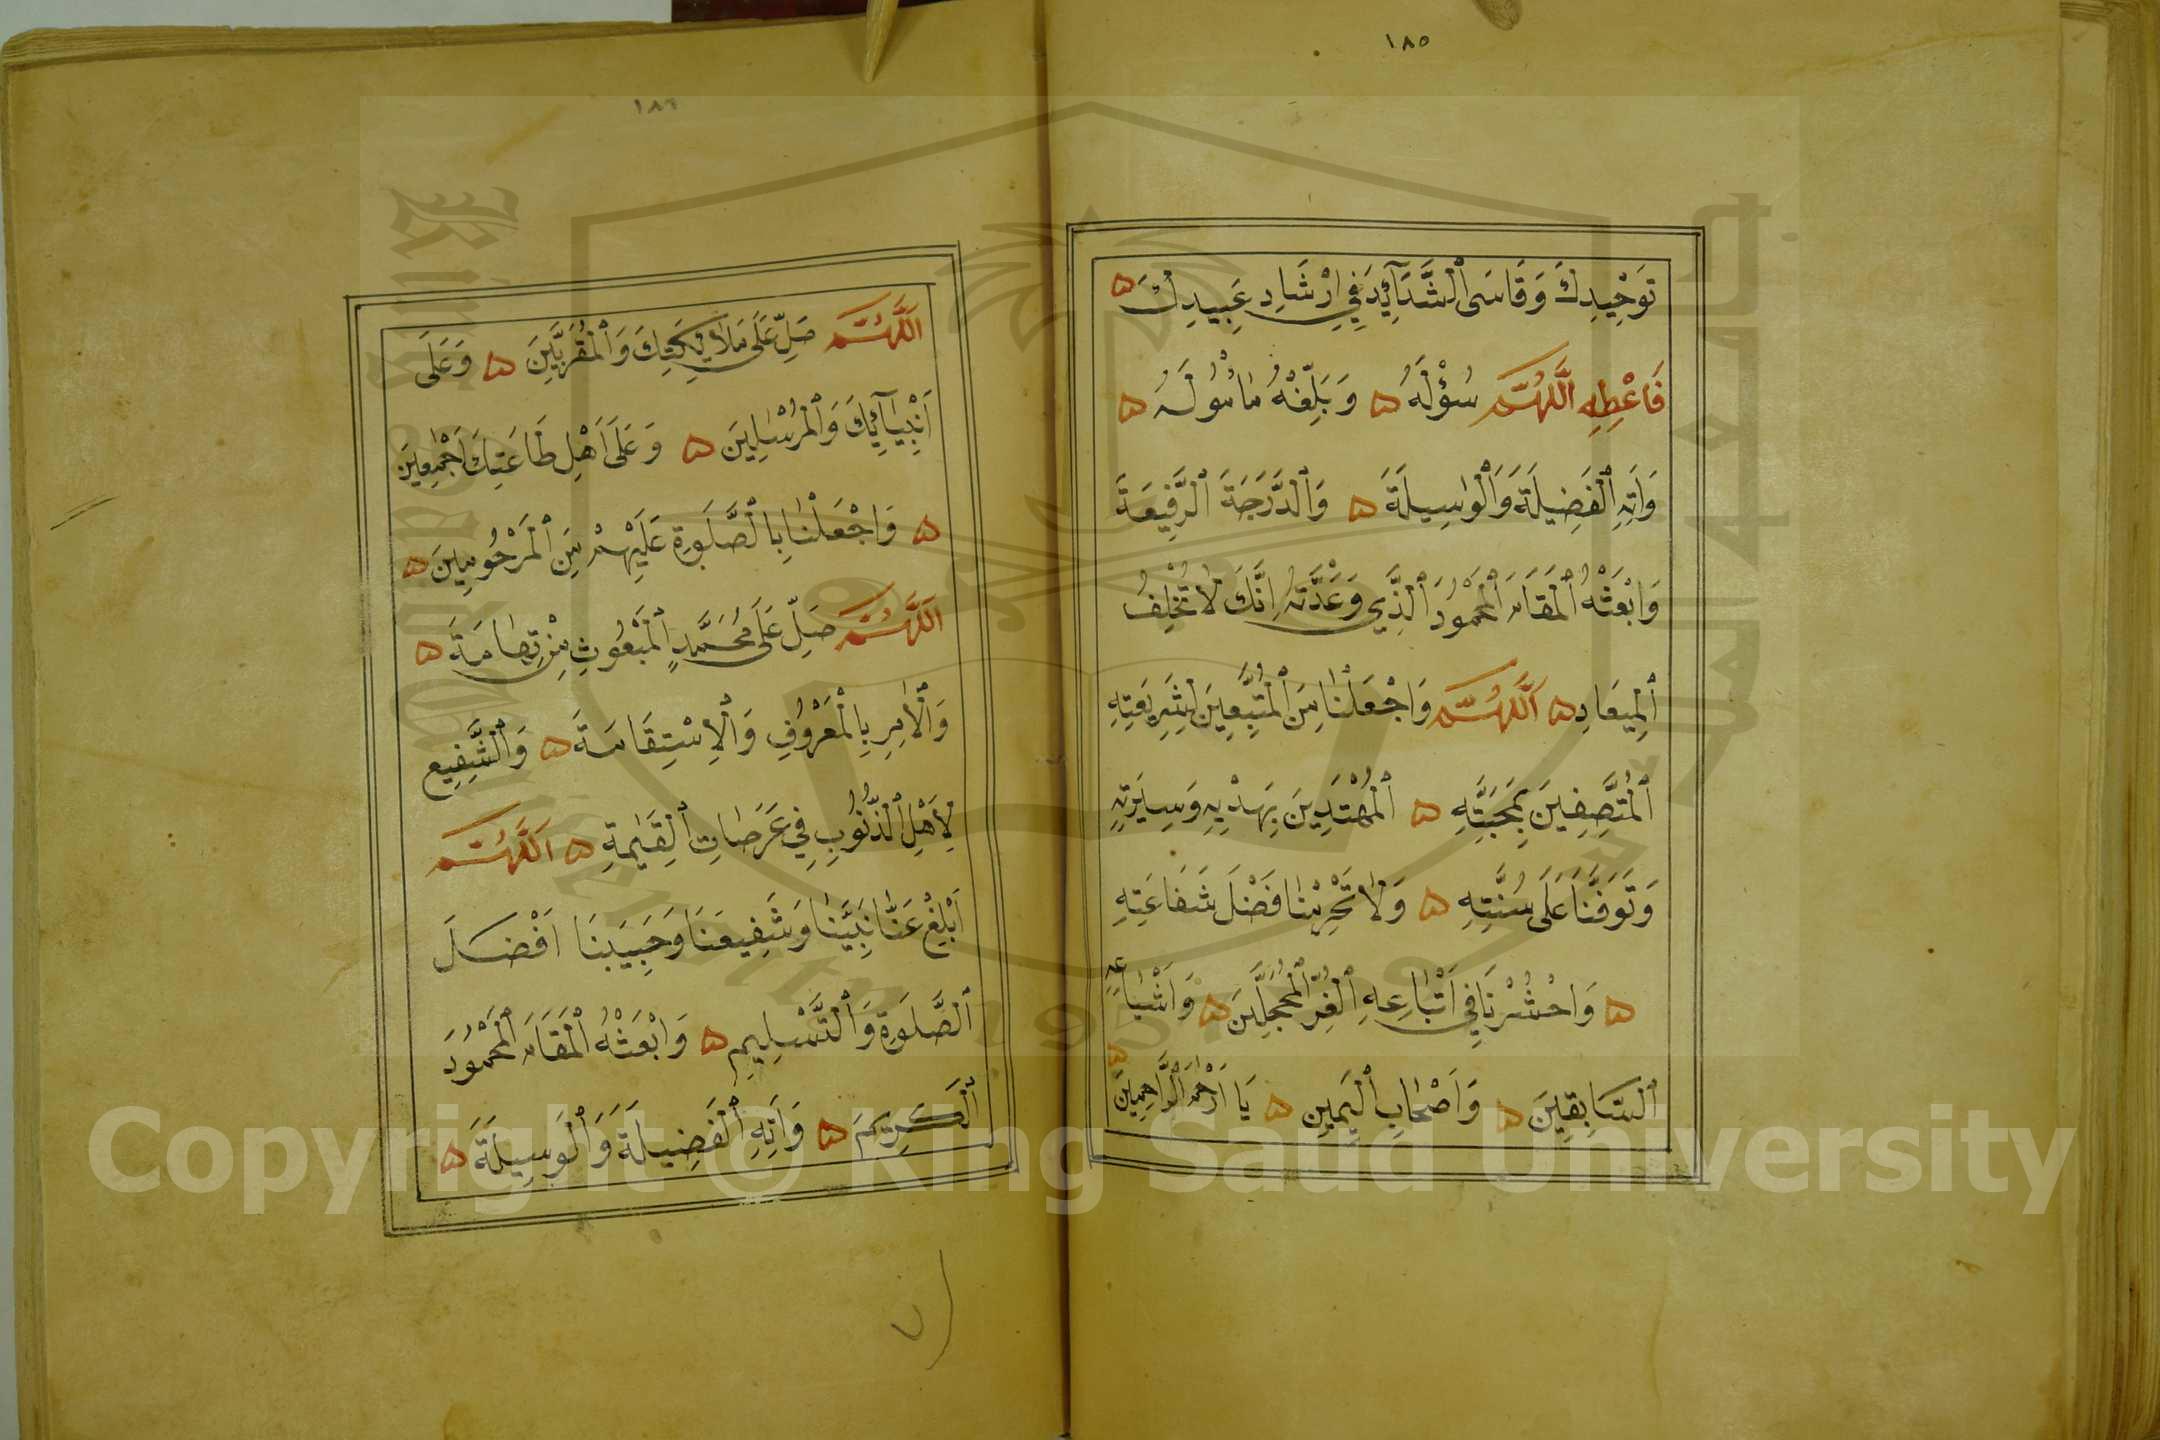 ١٨٥
تَوْحِيدِكَ وَقَاسَى ٱلشَّدَآئِدَ فِي اِرْشَادِ عَبِيدِكَ ۵
فَاَعْطِهِ اَللّٰهُمَّ سُؤْلَهُ ۵ وَبَلِّغْهُ مَاْمُولَهُ ۵
وَاٰتِهِ ٱلْفَضِيلَةَ وَٱلْوَسِيلَةَ ۵ وَٱلدَّرَجَةَ ٱلرَّفِيعَةَ
وَابْعَثْهُ ٱلْمَقَامَ ٱلْمَحْمُودَ ٱلَّذِي وَعَدْتَهُ اِنَّكَ لَا تُخْلِفُ
ٱلْمِيعَادِ ۵ اَللّٰهُمَّ وَاجْعَلْنَا مِنَ ٱلْمُتَّبِعِينَ لِشَرِيعَتِهِ
ٱلْمُتَّصِفِينَ بِمَحَبَّتِهِ ۵ ٱلْمُهْتَدِينَ بِهَدْيِهِ وَسِيرَتِهِ
وَتَوَفَّنَا عَلَى سُنَّتِهِ ۵ وَلَا تَحْرِمْنَا فَضْلَ شَفَاعَتِهِ
۵ وَاحْشُرْنَا فِي اَتْبَاعِهِ ٱلْغُرِّ ٱلْمُحَجَّلِينَ ۵ وَاَشْيَاعِهِ
ٱلسَّابِقِينَ ۵ وَاَصْحَابِ ٱلْيَمِينِ ۵ يَا اَرْحَمَ ٱلرَّاحِمِينَ ۵
١٨٦
اَللّٰهُمَّ صَلِّ عَلَى مَلَائِكَتِكَ وَٱلْمُقَرَّبِينَ ۵ وَعَلَى
اَنْبِيَآئِكَ وَٱلْمُرْسَلِينَ ۵ وَعَلَى اَهْلِ طَاعَتِكَ اَجْمَعِينَ
۵ وَاجْعَلْنَا بِالصَّلَوٰةِ عَلَيْهِمْ مِنَ ٱلْمَرْحُومِينَ ۵
اَللّٰهُمَّ صَلِّ عَلَى مُحَمَّدٍ ٱلْمَبْعُوثِ مِنْ تِهَامَةَ ۵
وَٱلْاٰمِرِ بِالْمَعْرُوفِ وَٱلْاِسْتِقَامَةَ ۵ وَٱلشَّفِيعِ
لِاَهْلِ ٱلذُّنُوبِ فِي عَرَصَاتِ ٱلْقِيٰمَةِ ۵ اَللّٰهُمَّ
اَبْلِغْ عَنَّا نَبِيَّنَا وَشَفِيعَنَا وَحَبِيبَنَا اَفْضَلَ
ٱلصَّلَوٰةِ وَٱلتَّسْلِيمِ ۵ وَابْعَثْهُ ٱلْمَقَامَ ٱلْمَحْمُودَ
ٱلْكَرِيمَ ۵ وَاٰتِهِ ٱلْفَضِيلَةَ وَٱلْوَسِيلَةَ ۵
Copyright © King Saud University